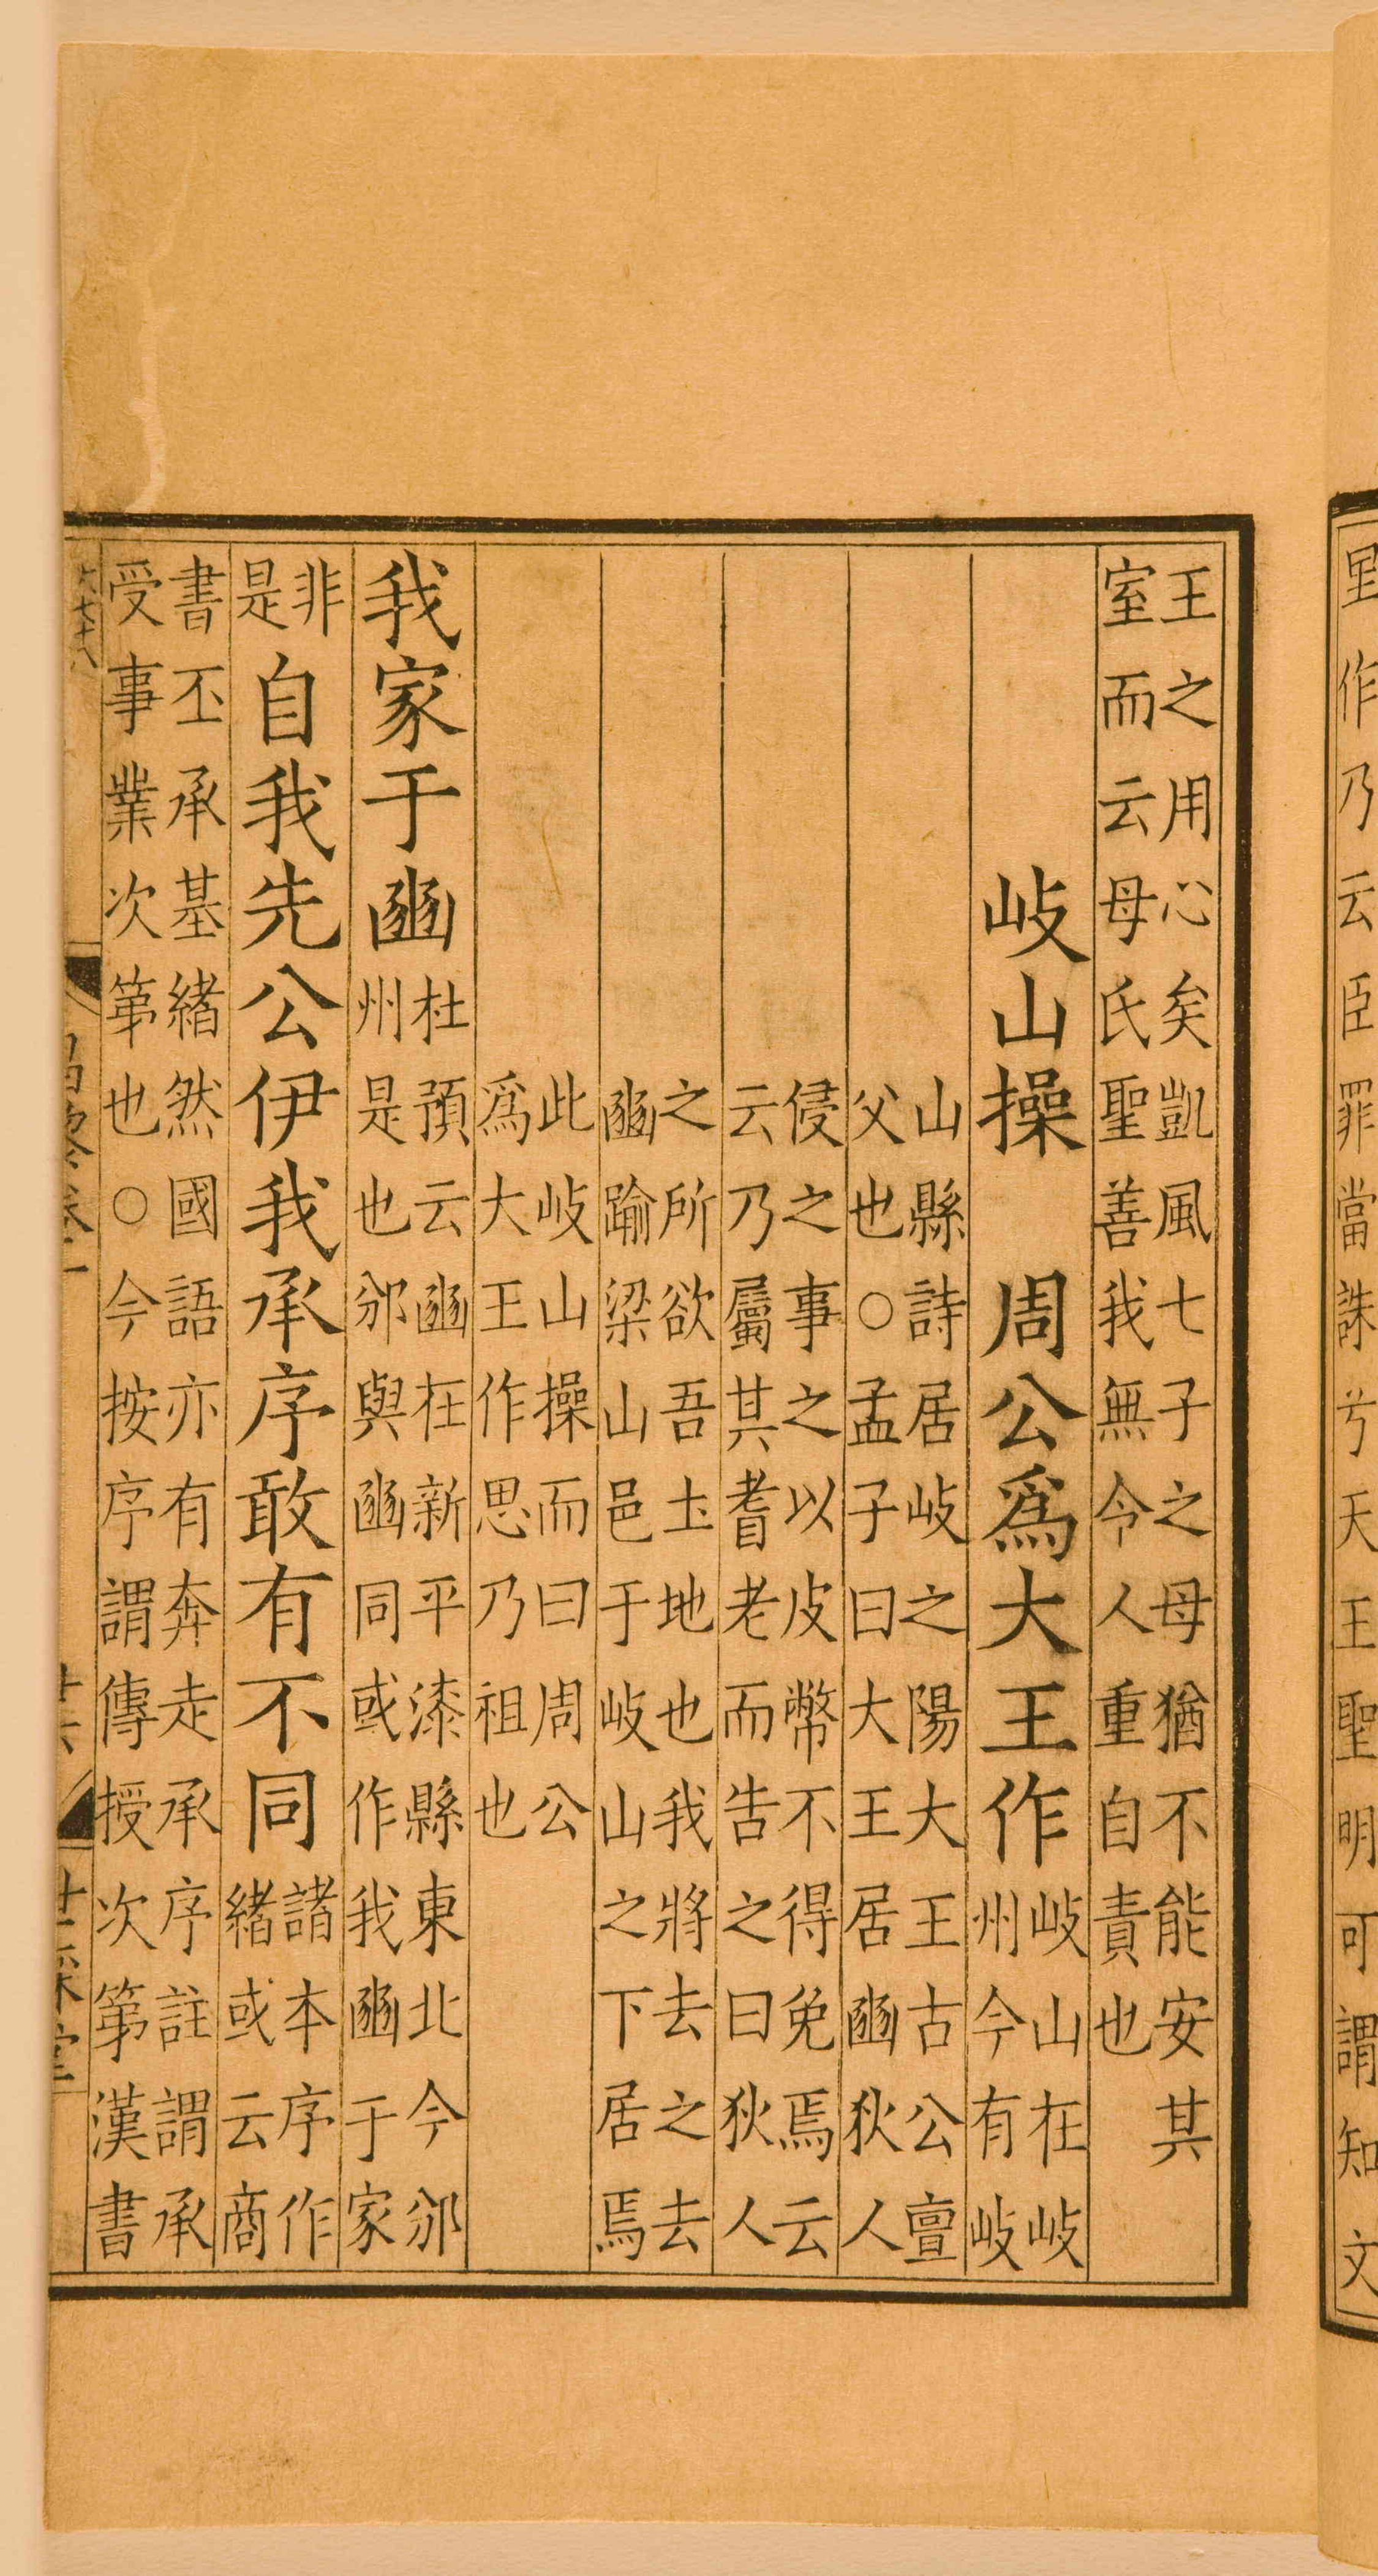 里作乃云臣罪當誅兮天王聖明可謂知文
王之用心矣凱風七子之母猶不能安其
室而云母氏聖善我無令人重自責也
岐山操 周公爲大王作
岐山在岐
州今有岐
山縣詩居岐之陽大王古公亶
父也○孟子曰大王居豳狄人
侵之事之以皮幣不得免焉云
云乃屬其耆老而告之曰狄人
之所欲吾土地也我將去之去
豳踰梁山邑于岐山之下居焉
此岐山操而曰周公
爲大王作思乃祖也
我家于豳
杜預云豳在新平漆縣東北今邠
州是也邠與豳同或作我豳于家
非
是
自我先公伊我承序敢有不同
諸本序作
緒或云商
書丕承基緒然國語亦有奔走承序註謂承
受事業次第也○今按序謂傳授次第漢書